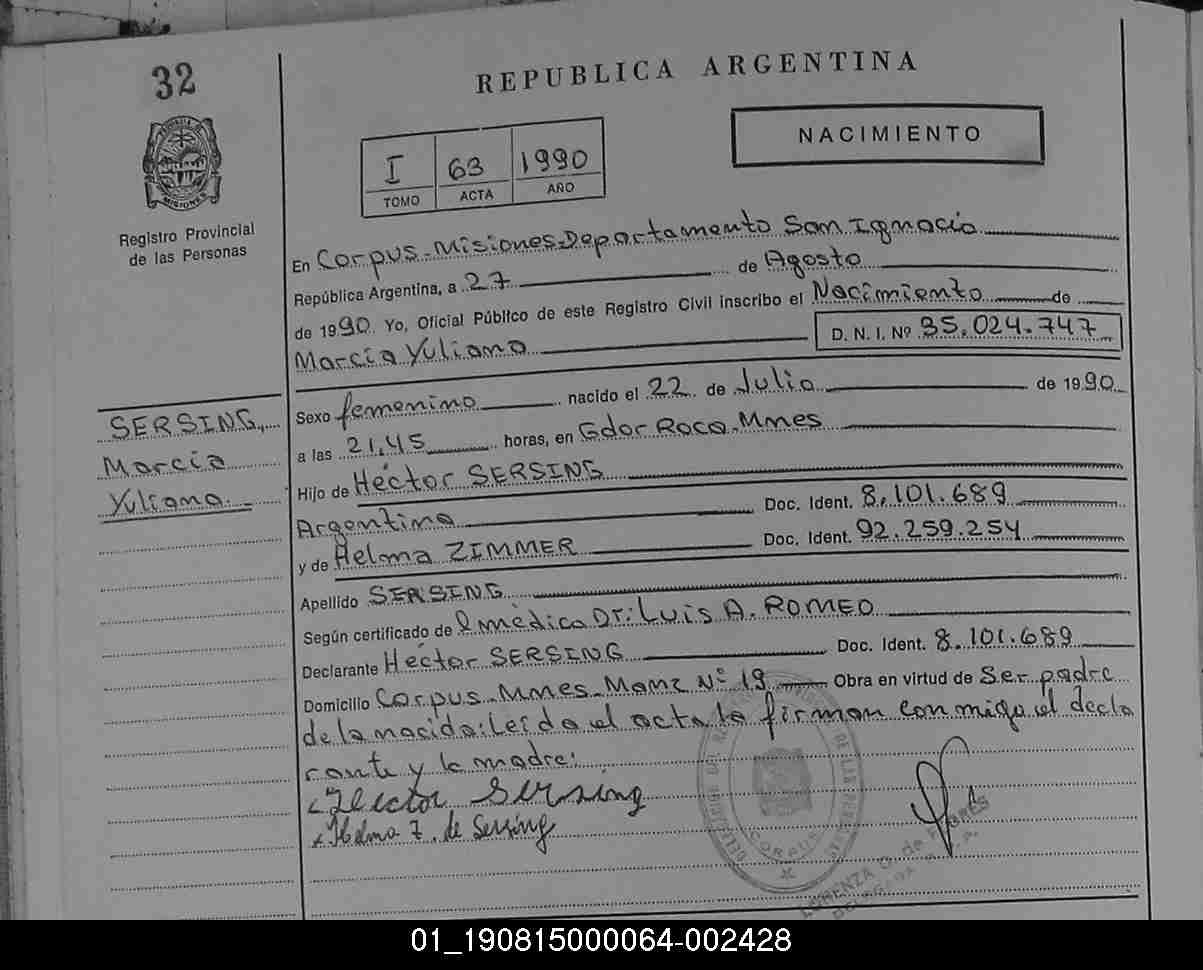 32
REPUBLICA ARGENTINA
NACIMIENTO
I 63 1990
TOMO ACTA AÑO
PROVINCIA DE
MISIONES
Registro Provincial
de las Personas
En Corpus-Misiones-Departamento San Ignacio
República Argentina, a 27 de Agosto
de 1990 Yo, Oficial Público de este Registro Civil inscribo el Nacimiento de
Marcia Yuliana D. N. I. Nº 35.024.747
SERSING,
Marcia
Yuliana.
Sexo femenino nacido el 22 de Julio de 1990
a las 21,45 horas, en Gdor Roca-Mnes
Hijo de Héctor SERSING
Argentina Doc. Ident. 8.101.689
y de Helma ZIMMER Doc. Ident. 92.259.254
Apellido SERSING
Según certificado de l médico Dr: Luis A. ROMEO
Declarante Héctor SERSING Doc. Ident. 8.101.689
Domicilio Corpus-Mnes-Manz Nº 19 Obra en virtud de Ser padre
de la nacida: Leída el acta la firman conmigo el decla
rante y la madre:
Hector Sersing
Helma Z. de Sersing
CORPUS
LORENZA G. de FLORES
DELEGADA
01_190815000064-002428